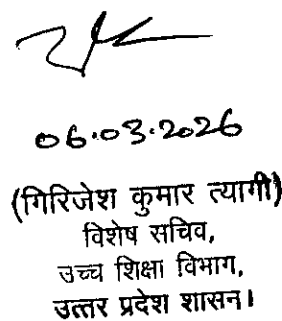 06.03.2026
(गिरिजेश कुमार त्यागी)
विशेष सचिव,
उच्च शिक्षा विभाग,
उत्तर प्रदेश शासन।